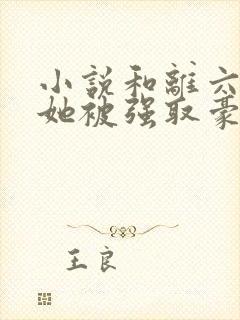 小說和離六
她被强取豪
王良